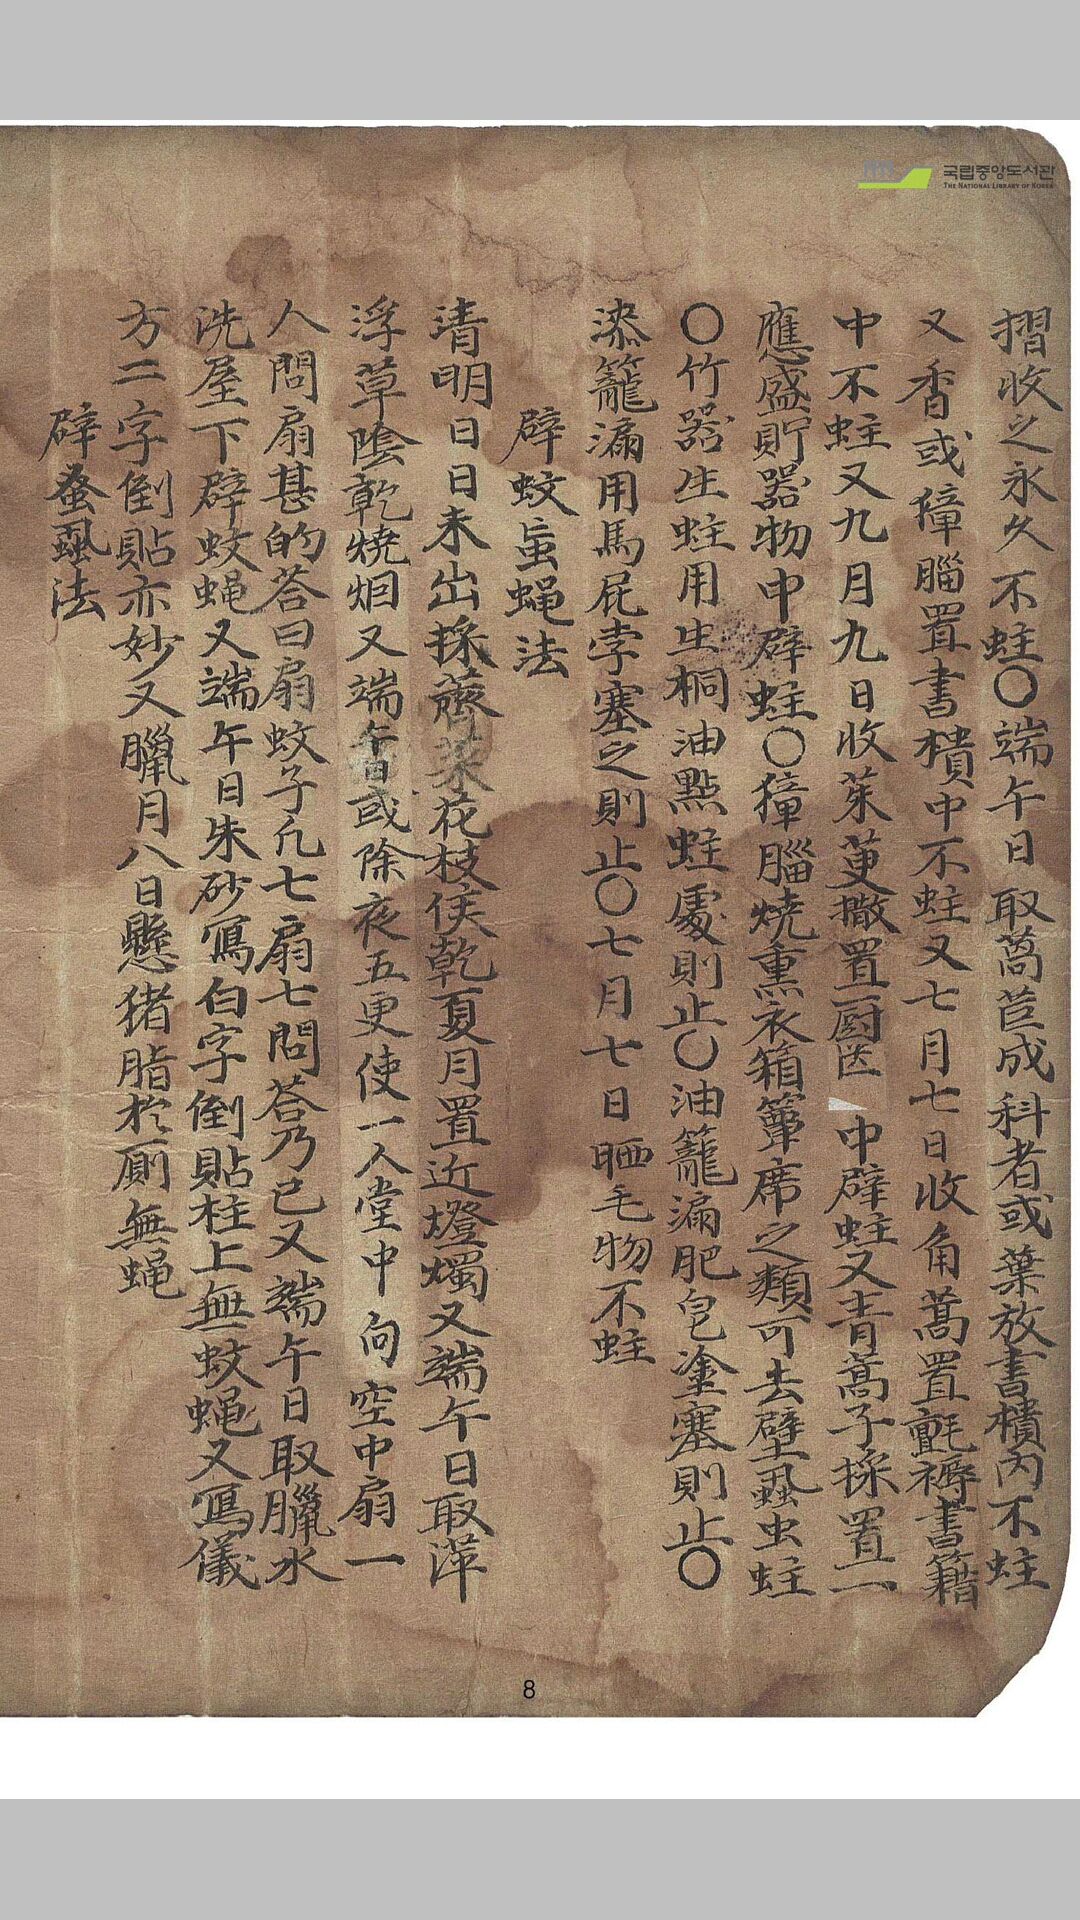 국립중앙도서관
THE NATIONAL LIBRARY OF KOREA
摺收之永久不蛀〇端午日取萵苣成科者或葉放書樻内不蛀
又香或獐腦置書樻中不蛀又七月七日收角蒿置氈褥書籍
中不蛀又九月九日收茱萸撒置厨医中辟蛀又青蒿子採置一
應盛貯器物中辟蛀〇獐腦燒熏衣箱簟席之類可去壁蝨虫蛀
〇竹器生蛀用生桐油點蛀處則止〇油籠漏肥皂塗塞則止〇
漆籠漏用馬屁孛塞之則止〇七月七日晒毛物不蛀
辟蚊䖟蝇法
清明日日未出採薺菜花枝候乾夏月置近燈燭又端午日取萍
浮草陰乾燒烟又端午日或除夜五更使一人堂中向空中扇一
人問扇甚的荅曰扇蚊子凢七扇七問荅乃已又端午日取臘水
洗屋下辟蚊蝇又端午日朱砂寫白字倒貼柱上無蚊蝇又寫儀
方二字倒貼亦妙又臘月八日懸猪脂扵厠無蝇
辟蚤蝨法
8